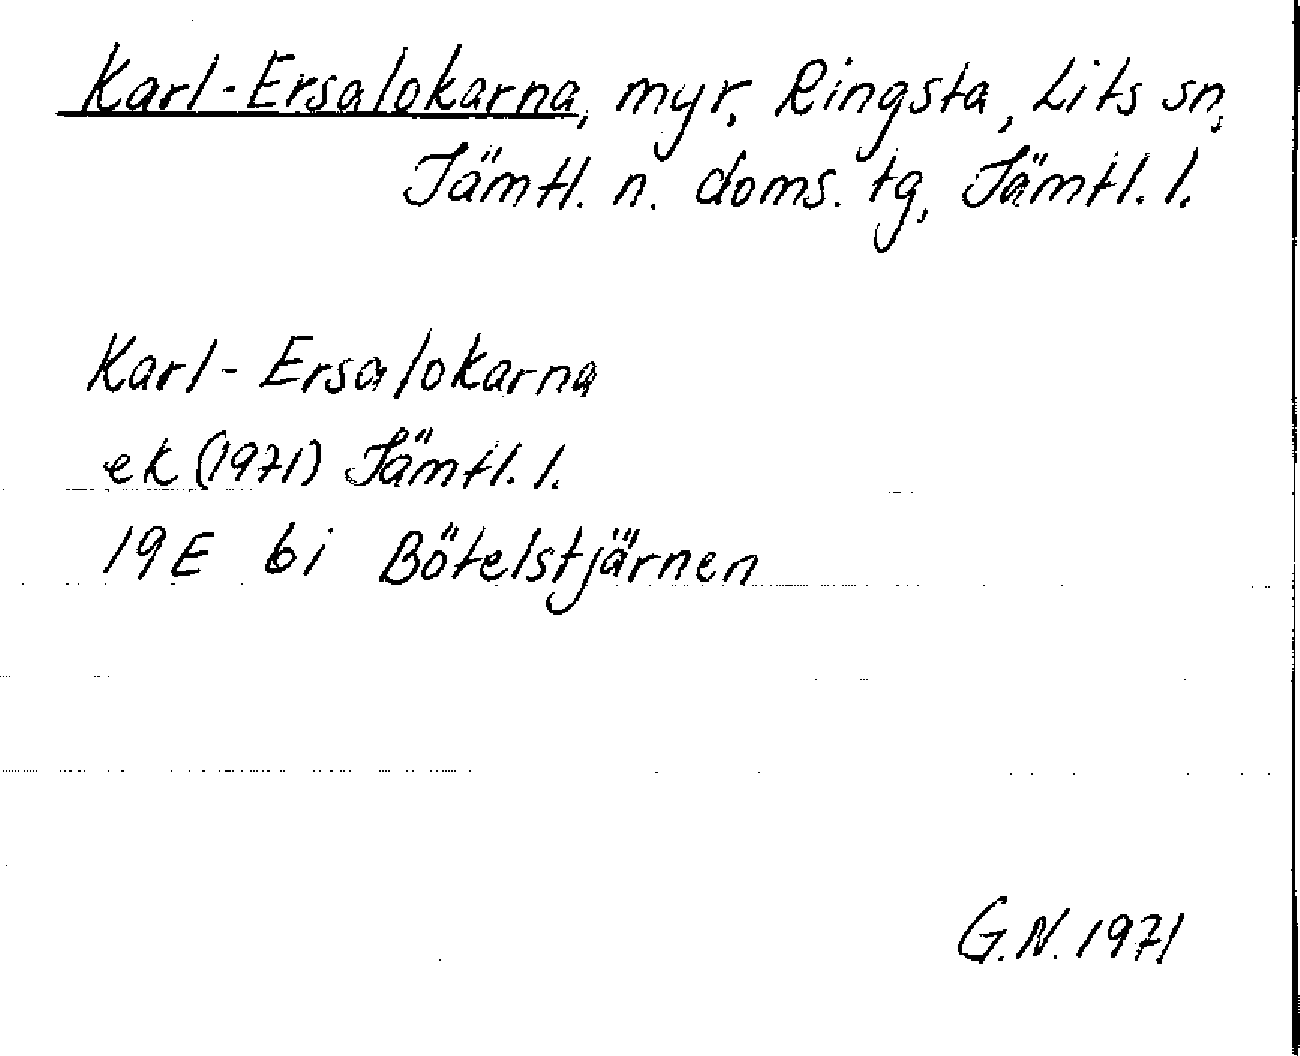 Karl-Ersalokarna, myr, Ringsta, Lits sn,
Jämtl. n. doms. tg, Jämtl. l.
Karl-Ersalokarna
ek (1971) Jämtl. l.
19E 6i Bötelstjärnen
G.N. 1971